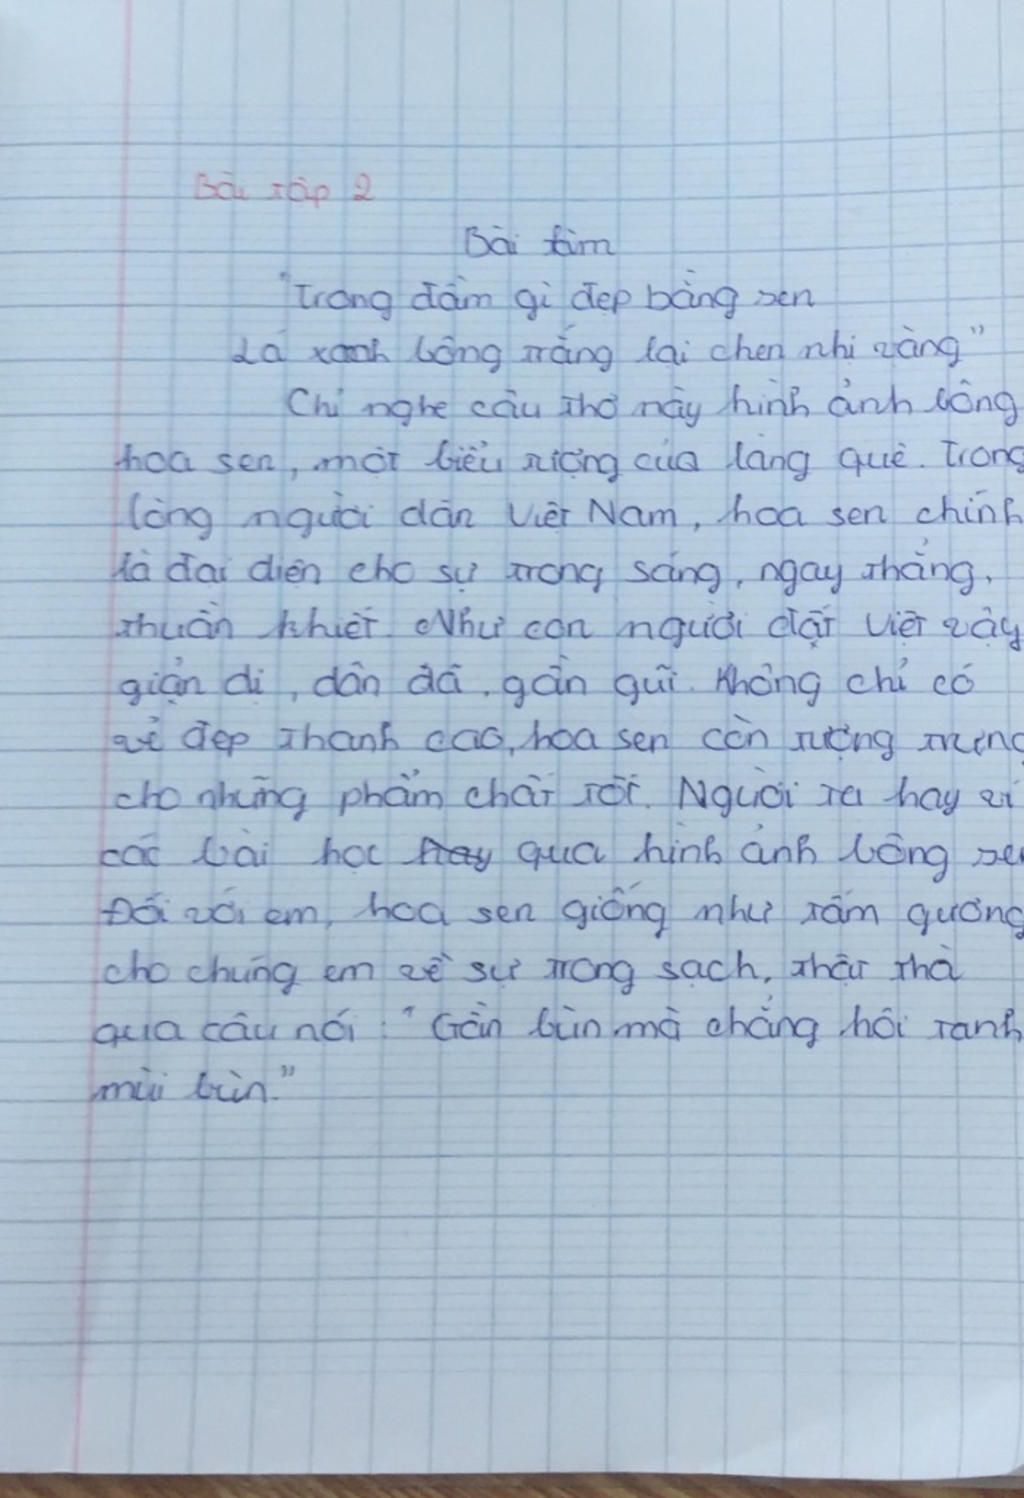 Bài tập 2
Bài làm
"Trong đầm gì đẹp bằng sen
Lá xanh bông trắng lại chen nhị vàng"
Chỉ nghe câu thơ này hình ảnh bông
hoa sen, một biểu tượng của làng quê. Trong
lòng người dân Việt Nam, hoa sen chính
là đại diện cho sự trong sáng, ngay thẳng,
thuần khiết. Như con người đất Việt vậy
giản dị, dân dã, gần gũi. Không chỉ có
vẻ đẹp thanh cao, hoa sen còn tượng trưng
cho những phẩm chất tốt. Người ta hay ví
các bài học hay qua hình ảnh bông sen
Đối với em, hoa sen giống như tấm gương
cho chúng em về sự trong sạch, thật thà
qua câu nói: "Gần bùn mà chẳng hôi tanh
mùi bùn."